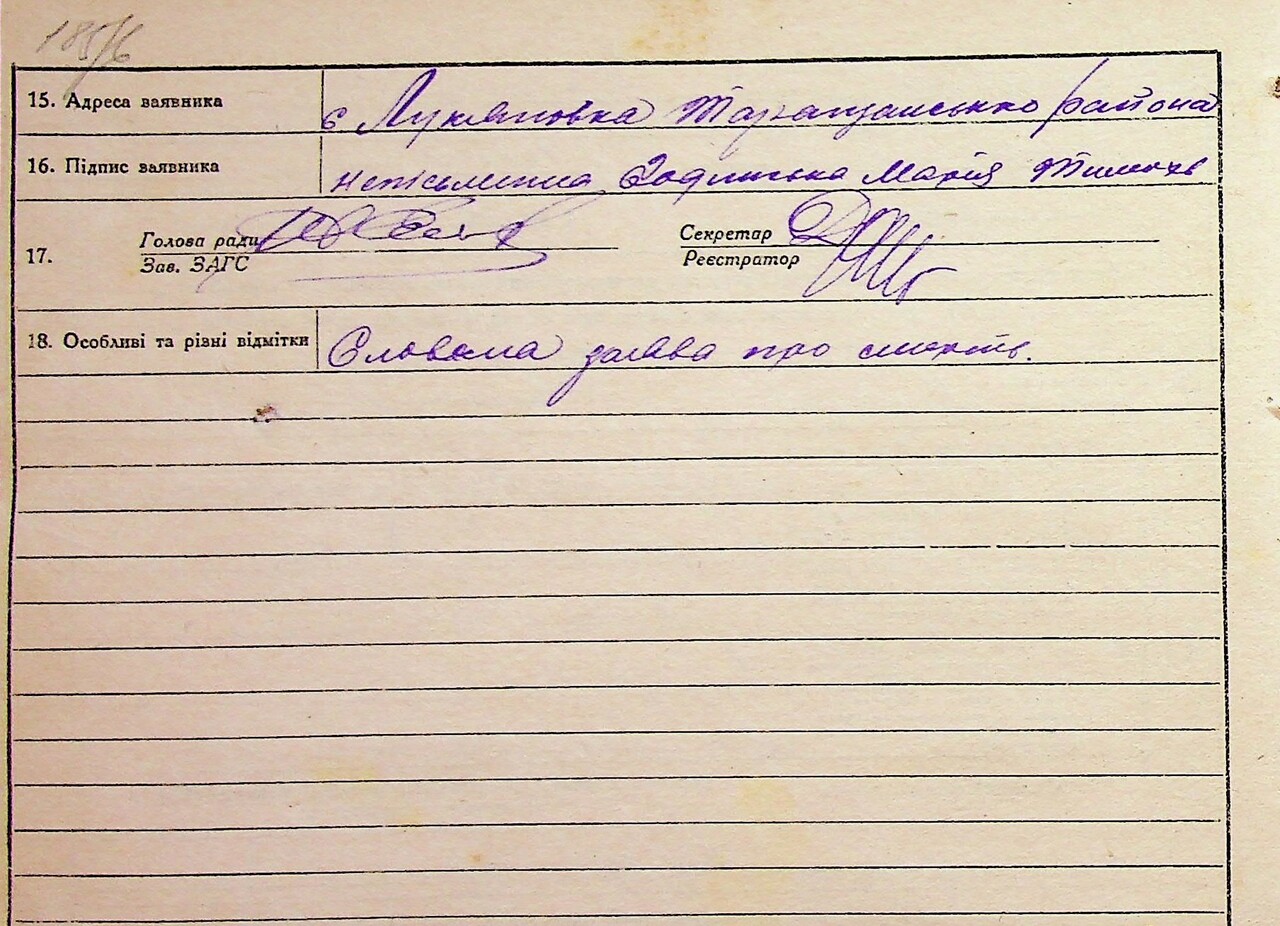 185/6
15. Адреса заявника с Лукяновка Таращансько района
16. Підпис заявника неписьменна Марія
17. Голова ради Секретар
Зав. ЗАГС Реєстратор
18. Особливі та різні відмітки Словесна заява про смерть.